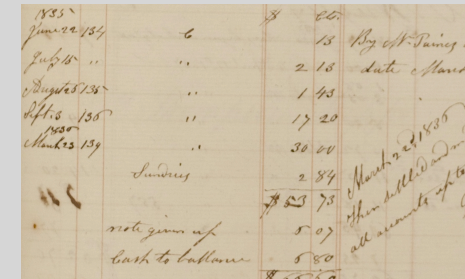 1835 $ Cts.
June 22 134 C 13 By Mr Paines
July 15 " " 2 13 date March
August 25 135 " 1 43
Sept. 3 136 " 17 20
1836
March 23 139 " 30 00
Sundries 2 84
$ 53 73
note given up 5 07
Cash to ballance 6 80
March 22d 1836
then settled and
all accounts up to